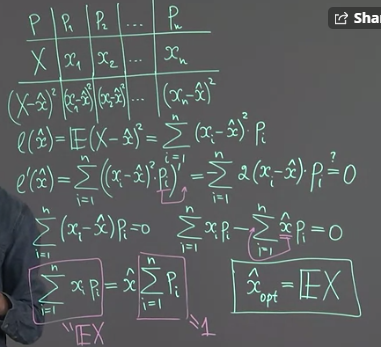 Shar
P | P₁ | P₂ | ... | Pₙ
X | x₁ | x₂ | ... | xₙ
(X-x̂)² | (x₁-x̂)² | (x₂-x̂)² | ... | (xₙ-x̂)²
ℓ(x̂)=𝔼(X-x̂)²=∑ᵢ₌₁ⁿ(xᵢ-x̂)²·Pᵢ
ℓ'(x̂)=∑ᵢ₌₁ⁿ((xᵢ-x̂)²·Pᵢ)'=∑ᵢ₌₁ⁿ2(xᵢ-x̂)·Pᵢ=?0
∑ᵢ₌₁ⁿ(xᵢ-x̂)Pᵢ=0 ∑ᵢ₌₁ⁿxᵢPᵢ-∑ᵢ₌₁ⁿx̂Pᵢ=0
∑ᵢ₌₁ⁿxᵢPᵢ=x̂∑ᵢ₌₁ⁿPᵢ x̂opt=𝔼X
"𝔼X "1